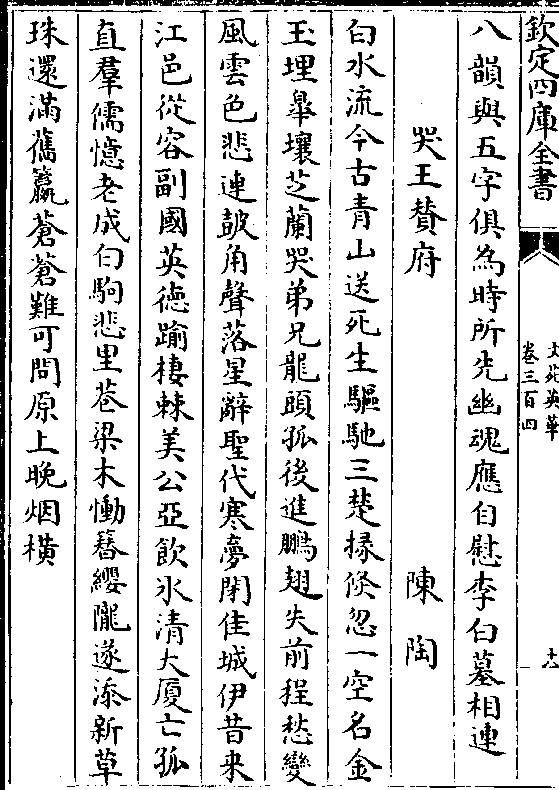 欽定四庫全書
文苑英華
卷三百四
八韻與五字俱為時所先幽魂應自慰李白墓相連
哭王賛府 陳陶
白水流今古青山送死生驅馳三楚掾倐忽一空名金
玉埋臯壤芝蘭哭弟兄龍頭孤後進鵬翅失前程愁變
風雲色悲連皷角聲落星辭聖代寒夢閉佳城伊昔来
江邑從容副國英徳踰棲棘美公亞飲氷清大厦亡孤
直羣儒憶老成白駒悲里巷梁木慟簪纓隴遂添新草
珠還滿舊籯蒼蒼難可問原上晩烟横